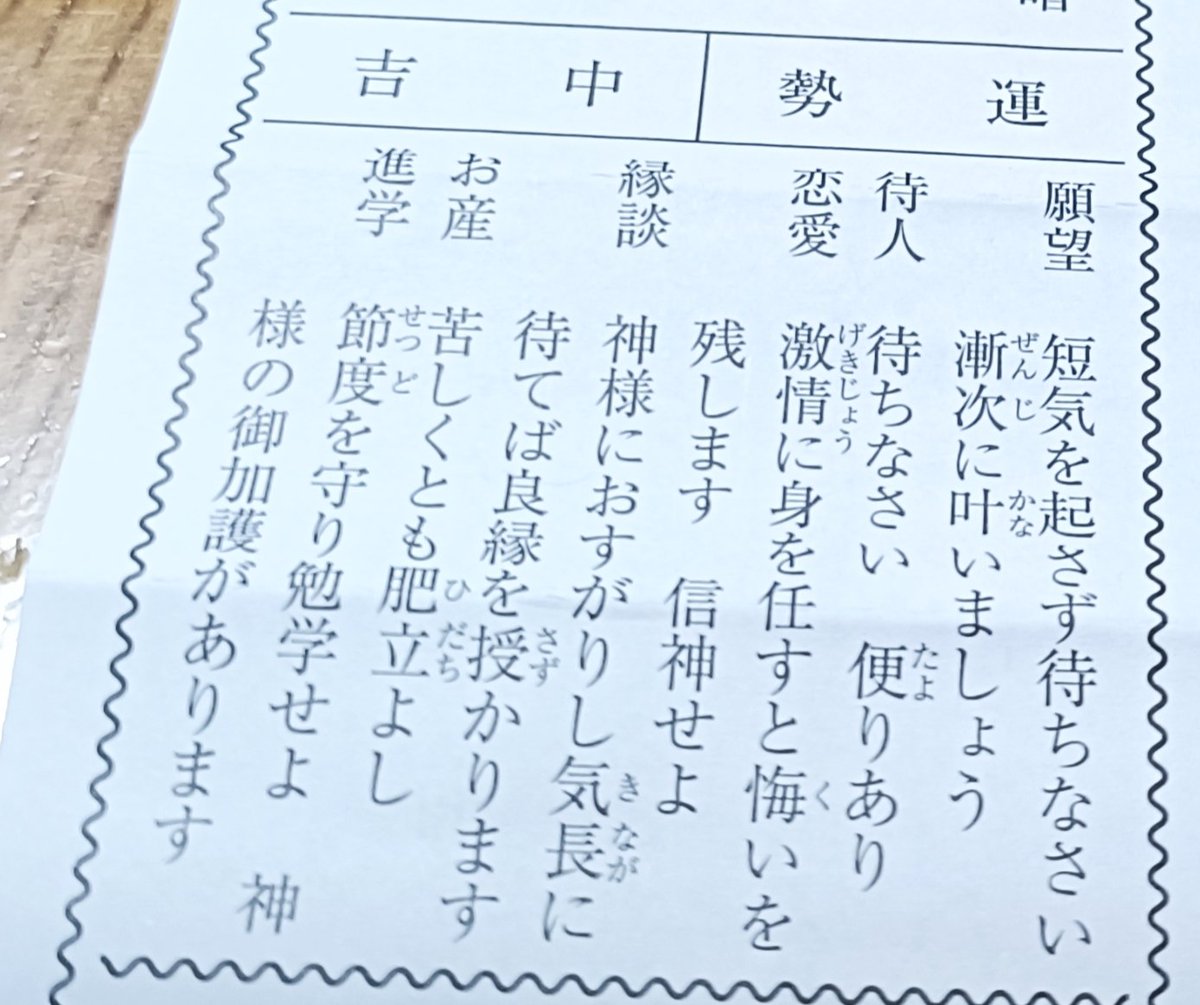 運勢 中吉
願望 短気を起さず待ちなさい
漸次に叶いましょう
待人 待ちなさい 便りあり
恋愛 激情に身を任すと悔いを
残します 信神せよ
縁談 神様におすがりし気長に
待てば良縁を授かります
お産 苦しくとも肥立よし
進学 節度を守り勉学せよ 神
様の御加護があります